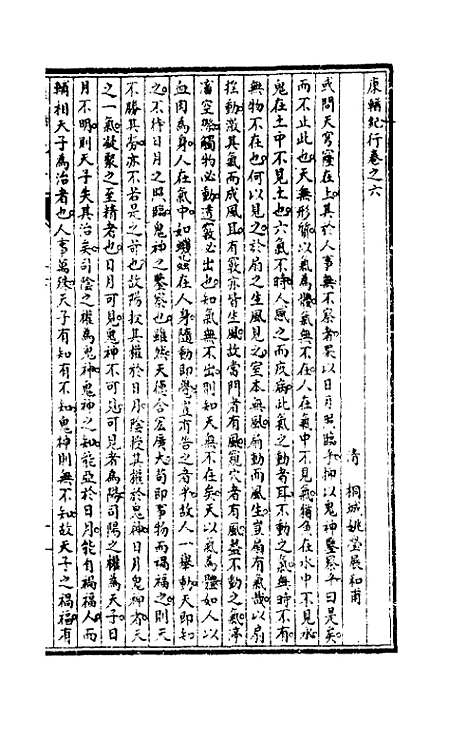 康輶紀行卷之六
清 桐城姚瑩展和甫
或問天穹窿在上其於人事無不察者果以日月照臨乎抑以鬼神鑒察乎曰是矣
而不止此也天無形質以氣為體氣無不在人在氣中不見氣猶魚在水中不見水
鬼在土中不見土也六氣不時人感之而疫病此氣之動者耳不動之氣無時不有
無物不在也何以見之於扇之生風見之室本無風扇動而風生豈扇有氣哉以扇
搖動激其氣而成風耳有竅亦皆生風故當門者有風窺穴者有風蓋不動之氣亭
滀空際觸物必動遭竅必出也知氣無不出則知天無不在矣天以氣為體如人以
血肉為身人在氣中如蟣蝨在人身隨動即覺豈有告之者乎故人一舉動天即知
之不待日月之照臨鬼神之鑒察也雖然天德含宏廣大苟即事物而禍福之則天
不勝其勞亦不若是之苛也故陽授其權於日月陰授其權於鬼神日月鬼神者天
之一氣凝聚之至精者也日月可見鬼神不可見可見者為陽司陽之權為天子日
月不明則天子失其治矣司陰之權為鬼神鬼神之知能亞於日月能有禍福人而
輔相天子為治者也人事萬殊天子有知有不知鬼神則無不知故天子之禍福有